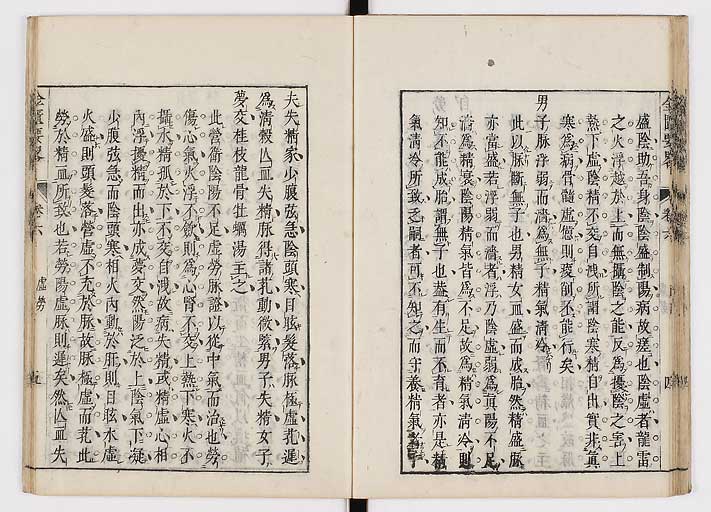 盛陰助吾身陰陰盛制陽病故瘥也陰虛者龍雷
之火浮越於上而無攝陰之能反為擾陰之害上
熱下虛陰精不交自洩所謂陰寒精自出實非真
寒為病骨髓虛憊則痠削不能行矣
男子脉浮弱而濇為無子精氣清冷
此以脉斷無子也男精女血盛而成胎然精盛脉
亦當盛若浮弱而濇者浮乃陰虛弱為真陽不足
濇為精衰陰陽精氣皆為不足故為精氣清冷則
知不能成胎謂無子也蓋有生而不育者亦是精
氣清冷所致乏嗣者可不知之而守養精氣
夫失精家少腹弦急陰頭寒目眩髮落脉極虛芤遲
為清穀亾血失精脉得諸芤動微緊男子失精女子
夢交桂枝龍骨牡蠣湯主之
此營衛陰陽不足虛勞脉證以從中氣而治也勞
傷心氣火浮不歛則為心腎不交上熱下寒火不
攝水精孤於下不交自洩故病失精或精虛心相
內浮擾精而出亦成夢交然陽泛於上陰氣下凝
少腹弦急而陰頭寒相火內動於肝則目眩水虛
火盛則頭髮落營虛不充於脉故脉極虛而芤此
勞於精血所致也若勞陽虛脉則遲矣然亾血失
金匱要畧
卷六
虛勞
五
四